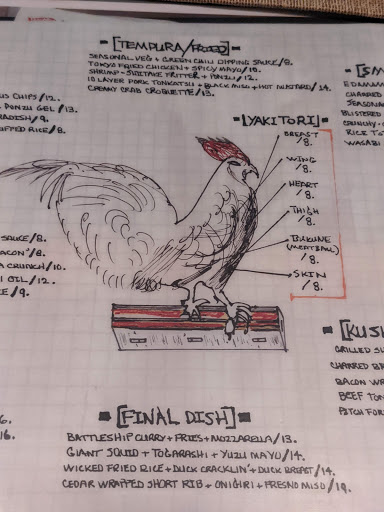 [TEMPURA/FRIED]
SEASONAL VEG + GREEN CHILI DIPPING SAUCE/8.
TOKYO FRIED CHICKEN + SPICY MAYO/10.
SHRIMP-SHIITAKE FRITTER + PONZU/12.
10 LAYER PORK TONKATSU + BLACK MISO + HOT MUSTARD/14.
CREAMY CRAB CROQUETTE/13.
CHIPS/12.
PONZU GEL/13.
RADISH/9.
PUFFED RICE/8.
SAUCE/8.
BACON/8.
CRUNCH/10.
OIL/12.
/9.
[YAKITORI]
BREAST
/8.
WING
/8.
HEART
/8.
THIGH
/8.
TSUKUNE
(MEATBALL)
/8.
SKIN
/8.
[SM
EDAMAME
CHARRED
SEASONA
BLISTERED
CRUNCHY
RICE TO
WASABI
[KUSH
GRILLED
CHARRED
BACON WR
BEEF TON
PITCH FOR
6.
16.
[FINAL DISH]
BATTLESHIP CURRY + FRIES + MOZZARELLA/13.
GIANT SQUID + TOGARASHI + YUZU MAYO/14.
WICKED FRIED RICE + DUCK CRACKLIN' + DUCK BREAST/14.
CEDAR WRAPPED SHORT RIB + ONIGIRI + FRESNO MISO/19.